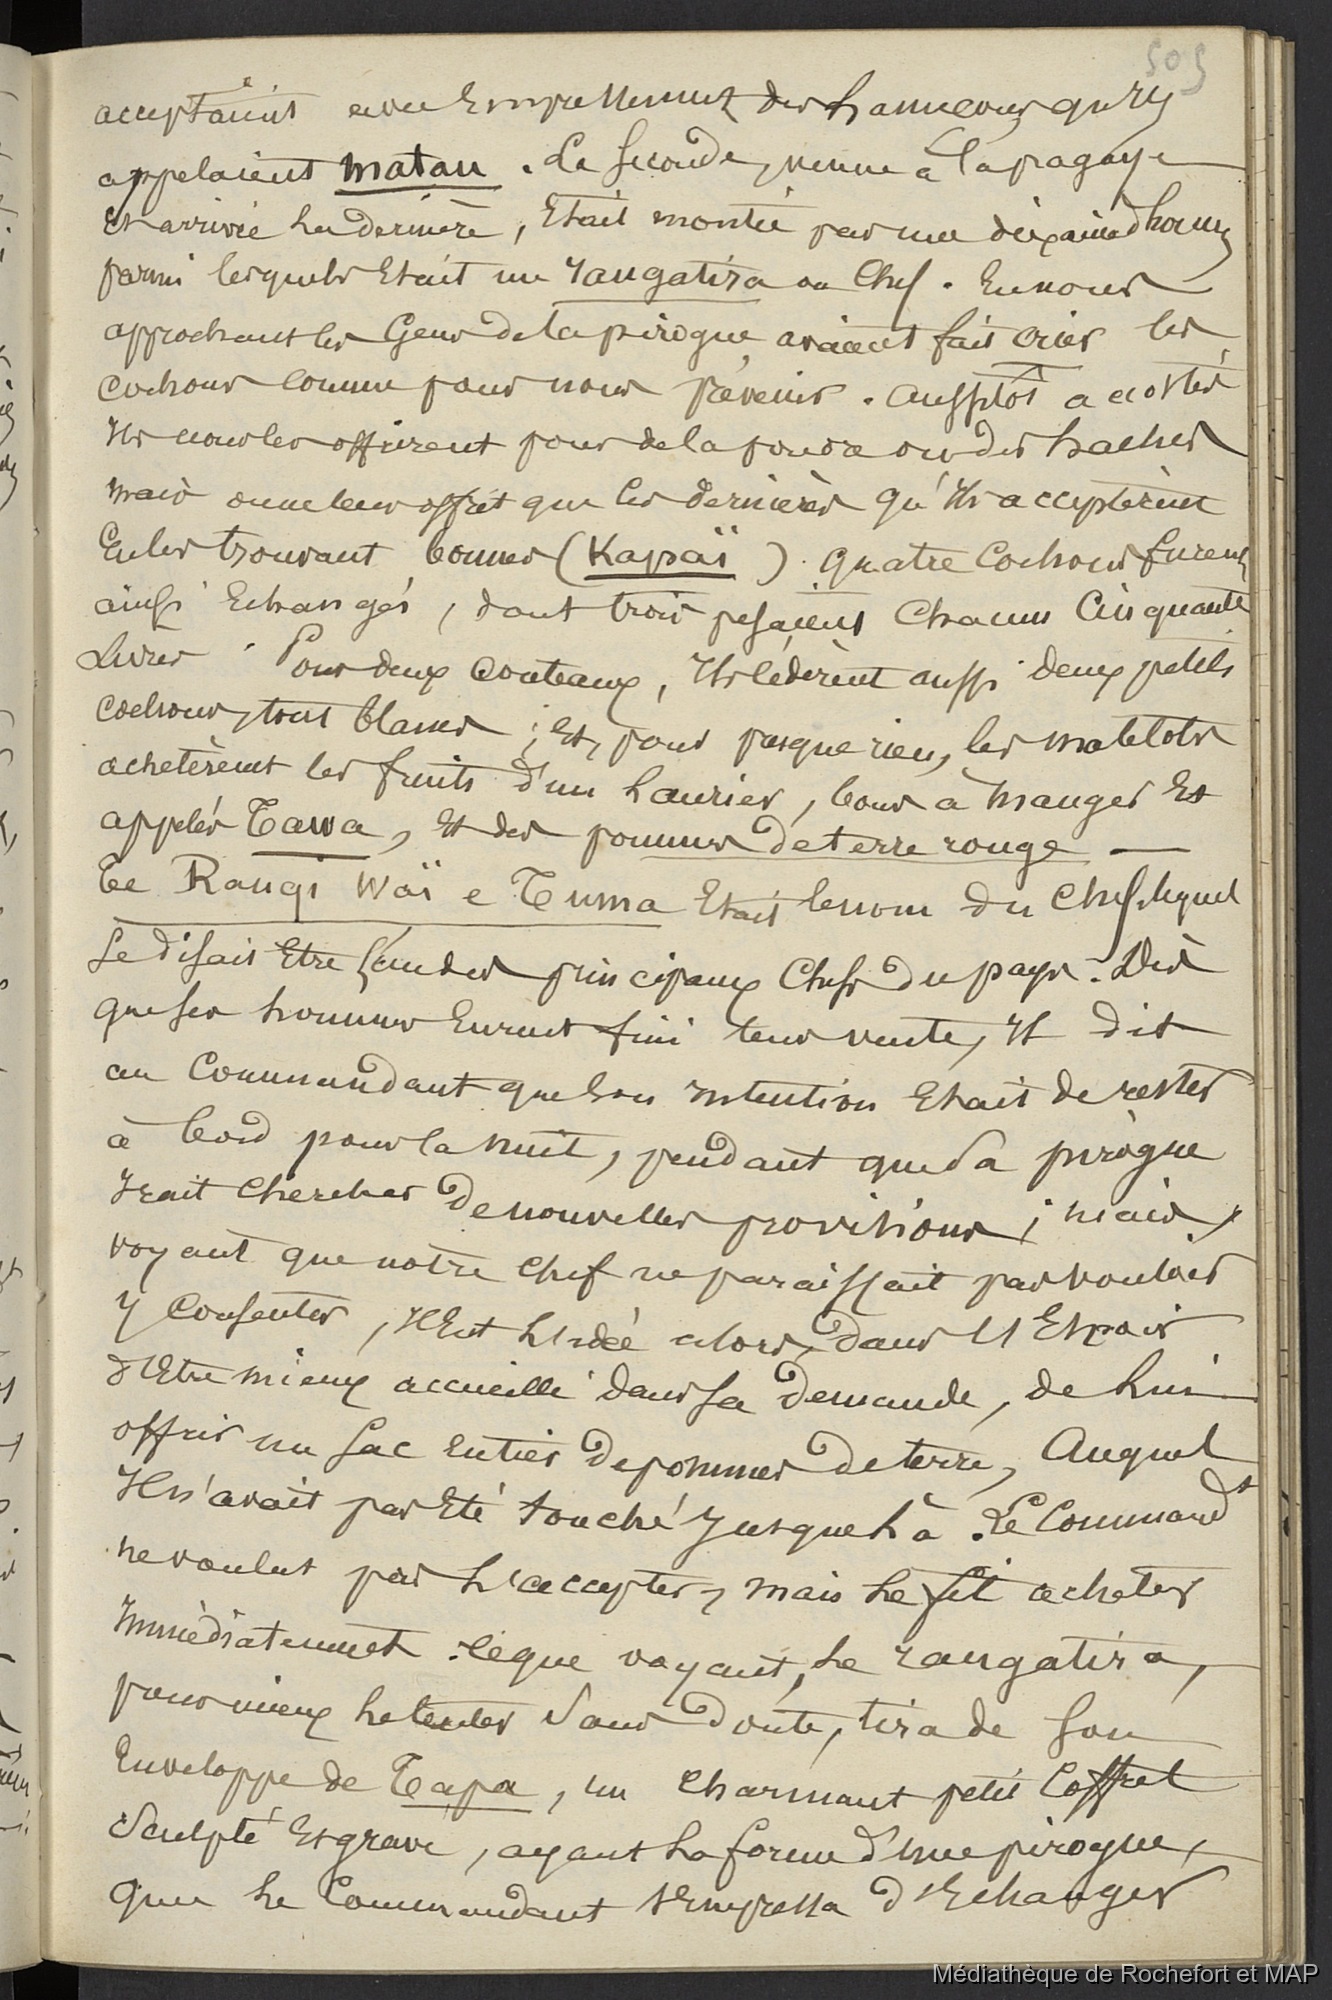 505
acceptaient avec Empressement des hameçons qu'Ils
appelaient matau. La Seconde, venue à la pagaye
Et arrivée La dernière, Etait montée par une dixaine d'hommes
parmi lesquels Etait un rangatira ou Chef. En nous
approchant les Gens de la pirogue avaient fait crier les
cochons comme pour nous prévenir. Aussitôt accostés
Ils nous les offrirent pour de la poudre ou des haches
mais on ne leur offrit que les dernières qu'Ils acceptèrent
En les trouvant bonnes (Kapaï). Quatre Cochons furent
ainsi Echangés, dont trois pesaient Chacun Cinquante
Livres. Pour deux Couteaux, Ils cédèrent aussi deux petits
cochons, tout blancs ; Et, pour presque rien, les matelots
achetèrent les fruits d'un Laurier, bons à Manger Et
appelés Tawa, Et des pommes de terre rouge —
Te Rangi Waï e Tuma Etait le nom du Chef, lequel
Se disait Etre l'un des principaux Chefs du pays. Dès
que ses hommes Eurent fini leur vente, Il dit
au Commandant que Son Intention Etait de rester
à bord pour la nuit, pendant que Sa pirogue
Irait chercher de nouvelles provisions ; mais,
voyant que notre chef ne paraissait pas vouloir
y Consentir, Il Eut L'Idée alors, dans l'Espoir
d'Etre mieux accueilli dans Sa demande, de Lui
offrir un Sac Entier de pommes de terre, Auquel
Il n'avait pas Eté touché Jusque Là. Le Commandt
ne voulut pas L'accepter, mais Le fit acheter
Immédiatement. Ce que voyant, Le rangatira,
pour mieux Le tenter Sans doute, tira de Son
Enveloppe de Tapa, un charmant petit Coffret
Sculpté Et gravé, ayant La forme d'une pirogue,
que Le Commandant S'Empressa d'Echanger
Médiathèque de Rochefort et MAP